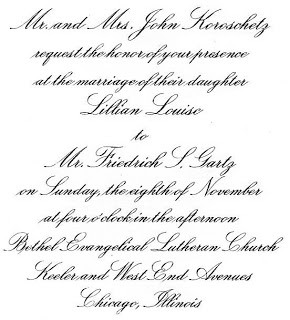 Mr. and Mrs. John Koroschetz
request the honor of your presence
at the marriage of their daughter
Lillian Louise
to
Mr. Friedrich S. Gartz
on Sunday, the eighth of November
at four o'clock in the afternoon
Bethel Evangelical Lutheran Church
Keeler and West End Avenues
Chicago, Illinois